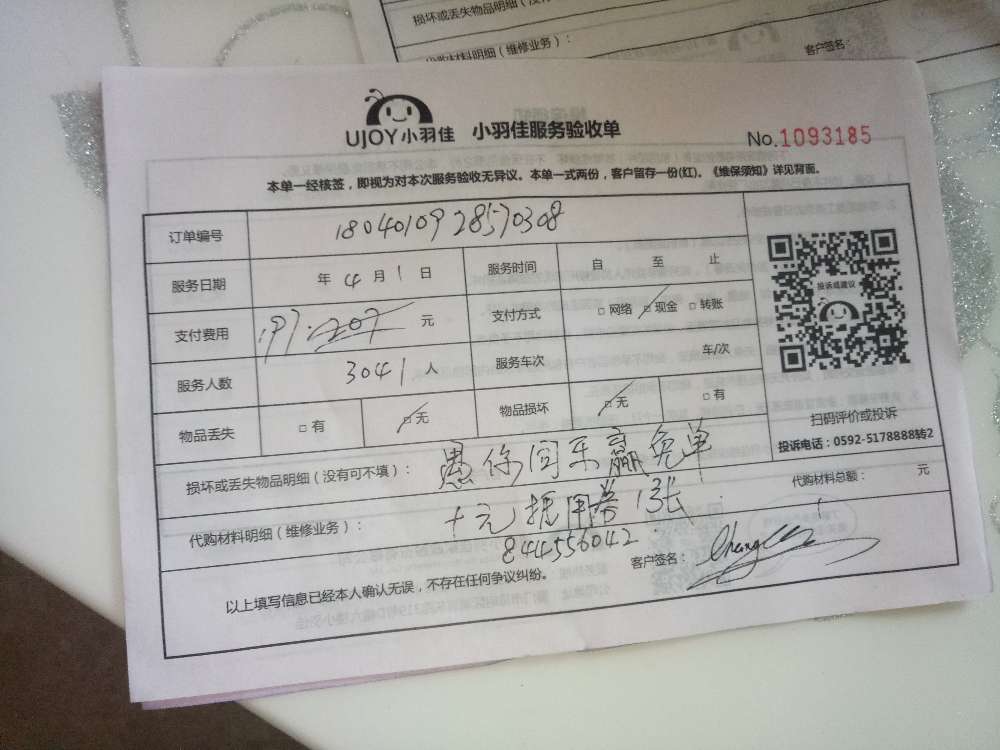 损坏或丢失物品明细（没有可不填）
代购材料明细（维修业务）：
客户签名：
UJOY小羽佳 小羽佳服务验收单
No.1093185
本单一经核签，即视为对本次服务验收无异议。本单一式两份，客户留存一份(红)。《维保须知》详见背面。
订单编号 18040109 28570308
服务日期 年 4 月 1 日 服务时间 自 至 止
支付费用 197. 207 元 支付方式 □ 网络 □ 现金 □ 转账
服务人数 3041 人 服务车次 车/次
物品丢失 □ 有 □ 无 物品损坏 □ 无 □ 有
投诉或建议
扫码评价或投诉
投诉电话：0592-5178888转2
损坏或丢失物品明细（没有可不填）： 愚你同乐赢免单
代购材料明细（维修业务）： 十元抵用券1张 代购材料总额： 元
844556042
以上填写信息已经本人确认无误，不存在任何争议纠纷。 客户签名：